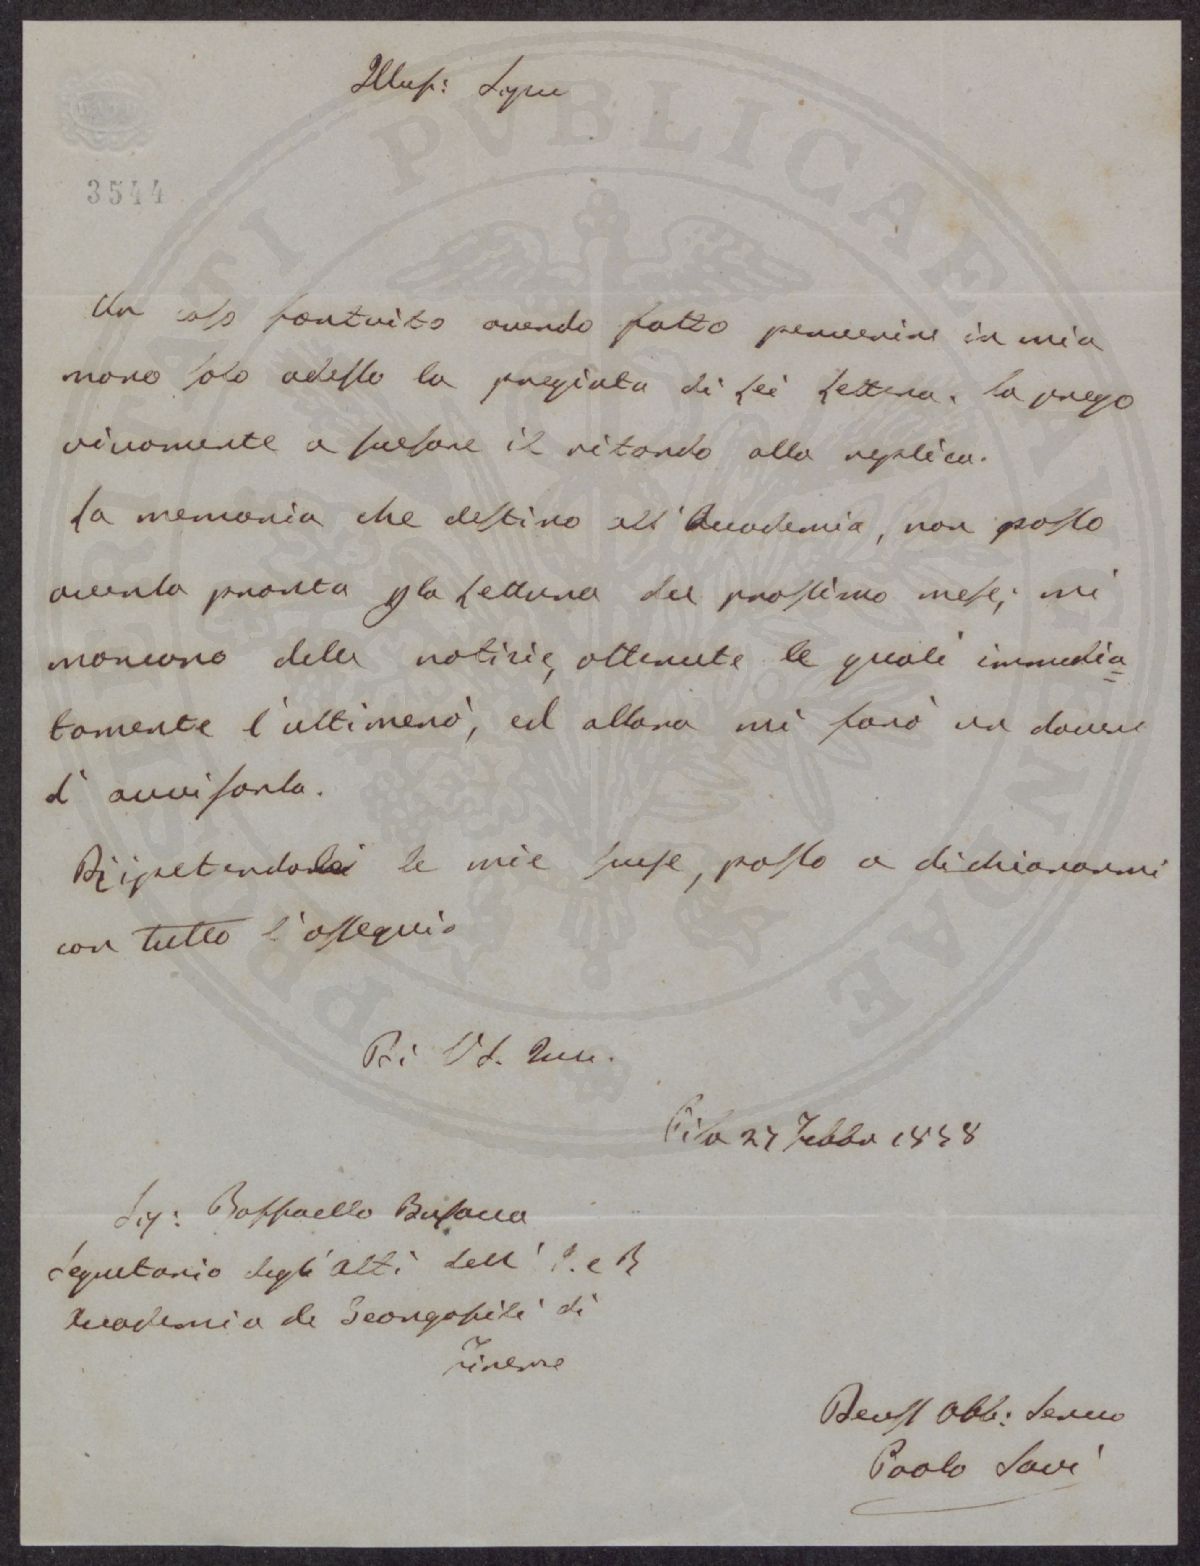 Illus: Sigre
3544
Un caso fortuito avendo fatto pervenire in mia
mano solo adesso la pregiata di Lei Lettera. la prego
vivamente a scusare il ritardo alla replica.
La memoria che destino all'Accademia, non posso
averla pronta p la Lettura del prossimo mese; mi
mancano delle notizie, ottenute le quali immedia=
tamente l'ultimerò, ed allora mi farò un dovere
d'avvisarla.
Ripetendole le mie scuse, passo a dichiararmi
con tutto l'ossequio
Di V S. Illu.
Pisa 27 Febbo 1858
Sig: Raffaello Busacca
Segretario degli Atti dell' I. e R
Accademia de Georgofili di
Firenze
Devss Obb: Servo
Paolo Savi
PVBLICAE